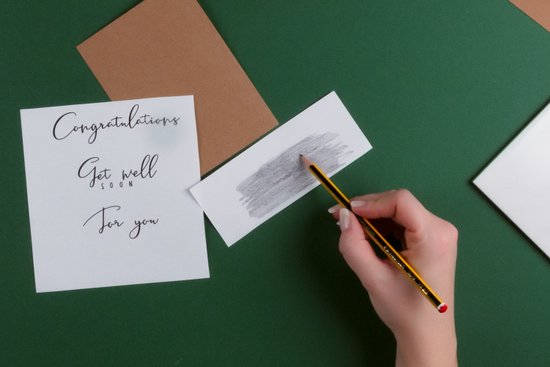 Congratulations
Get well
SOON
For you